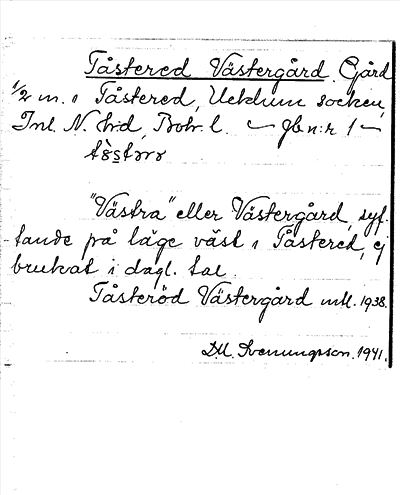 Tåstered Västergård. Gård
1/2 m. i Tåstered, Ucklum socken,
Inl. N. h:d, Boh. l. — Jb n:r 1 —
"Västra" eller Västergård, syf-
tande på läge väst i Tåstered, ej
brukat i dagl. tal.
Tåsteröd Västergård mtl. 1938.
D.M. Svenungsson. 1941.